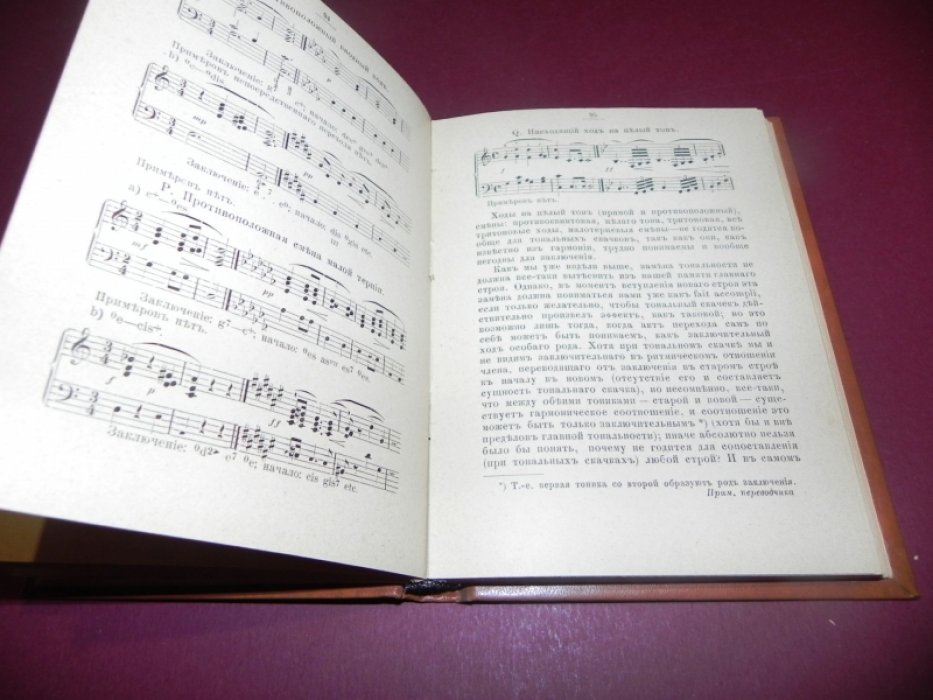 94
противоположный вводный ходъ.
Заключеніе:
Примѣровъ непосредственнаго перехода нѣтъ.
b) ⁰e—⁰dis.
mp
pp
Заключеніе:
Примѣровъ нѣтъ.
P. Противоположная смѣна малой терціи.
a) c⁺—⁰es
mf
pp
Заключеніе: g⁷—c⁺; начало: ⁰es as⁷ es⁷ etc.
Примѣровъ нѣтъ.
b) ⁰e—cis⁺
f
p
ff
Заключеніе: ⁰d² e⁷ ⁰e; начало: cis gis⁷ etc.
95
Q. Нисходящій ходъ на цѣлый тонъ.
f
ff
Примѣровъ нѣтъ.
Ходы на цѣлый тонъ (прямой и противоположный),
смѣны: противоквинтовая, цѣлаго тона, тритоновая, всѣ
тритоновые ходы, малотерцевыя смѣны—не годятся во-
обще для тональныхъ скачковъ, такъ какъ они, какъ
извѣстно изъ гармоніи, трудно понимаемы и вообще
негодны для заключенія.
Какъ мы уже видѣли выше, замѣна тональности не
должна все-таки вытѣснить изъ нашей памяти главнаго
строя. Однако, въ моментъ вступленія новаго строя эта
замѣна должна пониматься нами уже какъ fait accompli,
если только желательно, чтобы тональный скачекъ дѣй-
ствительно произвелъ эффектъ, какъ таковой; но это
возможно лишь тогда, когда актъ перехода самъ по
себѣ можетъ быть понимаемъ, какъ заключительный
ходъ особаго рода. Хотя при тональномъ скачкѣ мы и
не видимъ заключительнаго въ ритмическомъ отношеніи
члена, переводящаго отъ заключенія въ старомъ строѣ
къ началу въ новомъ (отсутствіе его и составляетъ
сущность тональнаго скачка), но несомнѣнно, все-таки,
что между обѣими тониками — старой и новой — суще-
ствуетъ гармоническое соотношеніе, и соотношеніе это
можетъ быть только заключительнымъ *) (хотя бы и внѣ
предѣловъ главной тональности); иначе абсолютно нельзя
было бы понять, почему не годится для сопоставленія
(при тональныхъ скачкахъ) любой строй? И въ самомъ
*) Т.-е. первая тоника со второй образуютъ родъ заключенія.
Прим. переводчика